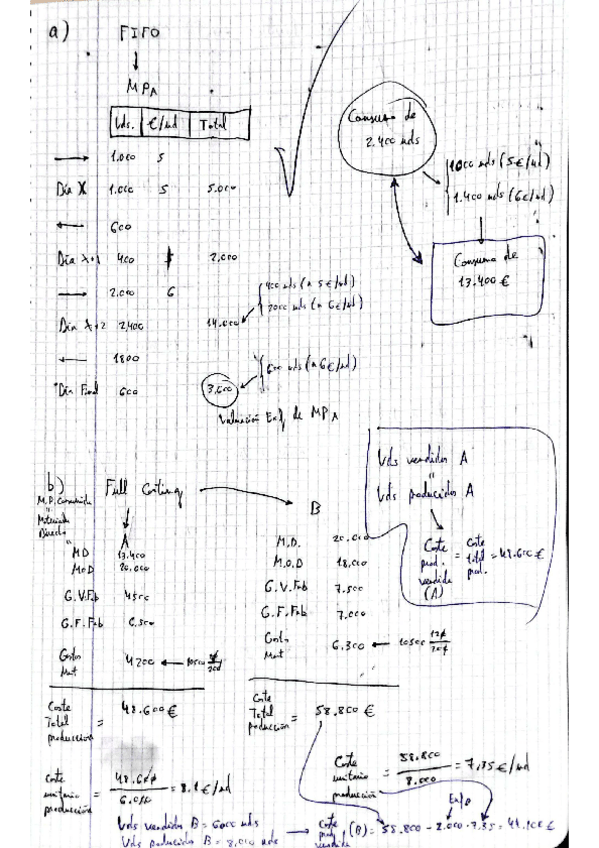 a) FIFO
MPA
Uds. €/ud Total
1.000 5
Día X 1.000 5 5.000
600
Día x+1 400 2.000
2.000 6
Día x+2 2400 14.000
400 uds (a 5€/ud)
2000 uds (a 6€/ud)
1800
Día Final 600 3.600
600 uds (a 6€/ud)
Valoración Exf. de MPA
Consumo de
2.400 uds
1000 uds (5€/ud)
1.400 uds (6€/ud)
Consumo de
13.400 €
b) Full Costing
M.P. Consumida
"
Materiales
Directos
"
A
MD 13.400
MOD 20.000
G.V.Fab 4500
G.F.Fab 6.500
Costes
Mant 4200
Coste
Total = 48.600€
producción
Coste
unitario = 48.600 / 6.000 = 8.1€/ud
producción
B
M.D. 20.000
M.O.D 18.000
G.V.Fab 7.500
G.F.Fab 7.000
Costes
Mant 6.300 10500
Coste
Total = 58.800 €
producción
Coste
unitario = 58.800 / 8.000 = 7,35€/ud
producción
Uds vendidas A
"
Uds producidas A
Coste prod. vendida (A) = Coste total prod. = 48.600€
Uds vendidas B = 6000 uds
Uds producidas B = 8,000 uds
Exf B
Coste prod vendida (B) = 58.800 - 2.000 · 7,35 = 44.100€